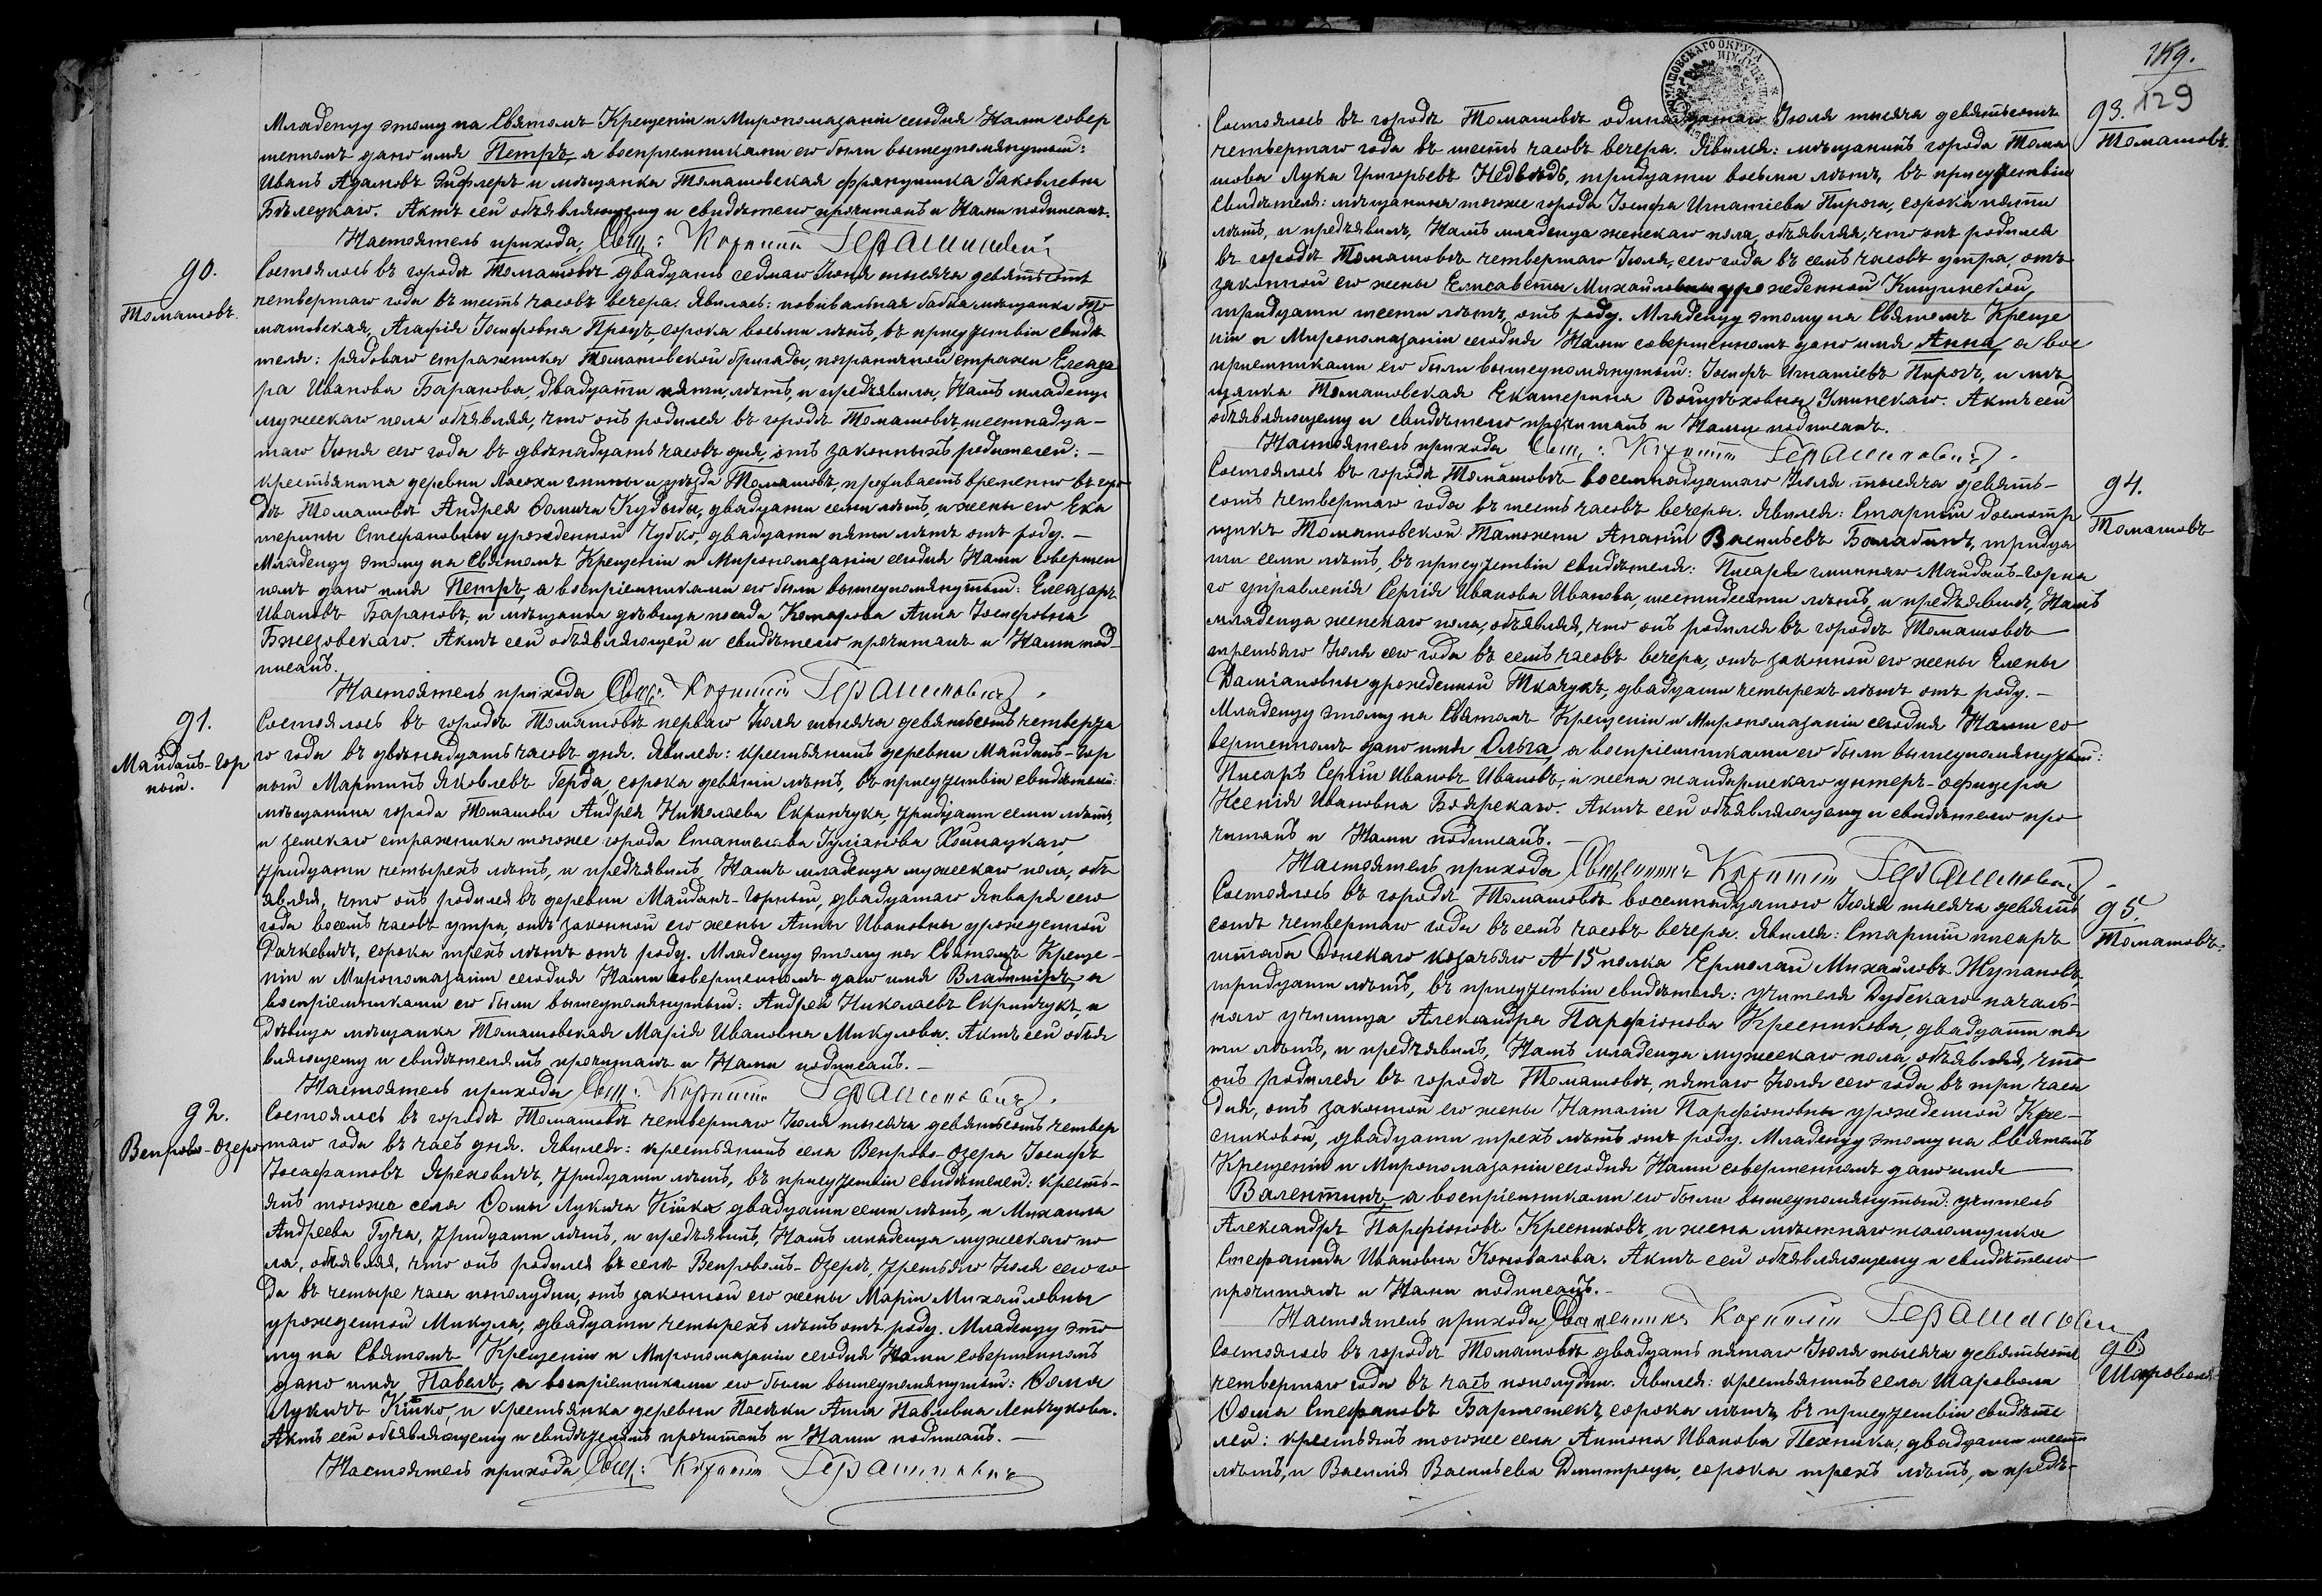 Младенцу этому на Святомъ Крещеніи и Миропомазаніи сегодня Нами совер
шенномъ дано имя Петръ, а воспріемниками его были вышеупомянутый:
Иванъ Адамовъ Зифлеръ и мѣщанка Томашовская Францишка Яковлевна
Бѣлецкаго. Актъ сей объявляющему и свидѣтелю прочитанъ и Нами подписанъ.
Настоятель прихода, Свящ: Корнилій Герашиновичъ
90.
Томашовъ.
Состоялось въ городѣ Томашовѣ двадцать седмаго Іюня тысяча девятьсотъ
четвертаго года въ шесть часовъ вечера. Явилась: повивальная бабка мѣщанка То
машовская, Агафія Іосифовна Процъ, сорока восьми лѣтъ, въ присутствіи свидѣ
теля: рядоваго стражника Томашовской бригады, пограничной стражи Елеаза
ра Иванова Баранова, двадцати пяти лѣтъ, и предъявила, Намъ младенца
мужескаго пола объявляя, что онъ родился въ городѣ Томашовѣ, шестнадца-
таго Іюня сего года въ двѣнадцать часовъ дня, отъ законныхъ родителей: -
крестьянина деревни Ласохи гмины и уѣзда Томашовъ, проживаетъ временно въ горо
дѣ Томашовѣ Андрея Ѳомича Кудыбы, двадцати семи лѣтъ, и жены его Ека
терины Стефановны урожденной Чубко, двадцати пяти лѣтъ отъ роду. -
Младенцу этому на Святомъ Крещеніи и Миропомазаніи сегодня Нами совершен
номъ дано имя Петръ а воспріемниками его были вышеупомянутый: Елеазаръ
Ивановъ Барановъ, и мѣщанка дѣвица посада Комарова Анна Іосифовна
Бжезовскаго. Актъ сей объявляющей и свидѣтелю прочитанъ и Нами под-
писанъ.
Настоятель прихода Свящ: Корнилій Герашиновичъ.
91.
Майданъ-Гор
ный.
Состоялось въ городѣ Томашовѣ перваго Іюля тысяча девятьсотъ четверта
го года въ двѣнадцать часовъ дня. Явился: крестьянинъ деревни Майданъ-Гор
ный Мартинъ Яковлевъ Герда, сорока девяти лѣтъ, въ присутствіи свидѣтелей:
мѣщанина города Томашова Андрея Николаева Скринчука, тридцати семи лѣтъ,
и земскаго стражника тогоже города Станислава Юліанова Хойнацкаго,
тридцати четырехъ лѣтъ, и предъявилъ Намъ младенца мужескаго пола, объ
являя, что онъ родился въ деревни Майданъ-Горный, двадцатаго Января сего
года восемь часовъ утра, отъ законной его жены Анны Ивановны урожденной
Дачкевичъ, сорока трехъ лѣтъ отъ роду. Младенцу этому на Святомъ Креще-
ніи и Миропомазаніи сегодня Нами совершенномъ дано имя Владиміръ, а
воспріемниками его были вышеупомянутый: Андрей Николаевъ Скринчукъ, и
дѣвица мѣщанка Томашовская Марія Ивановна Микулова. Актъ сей объя
вляющему и свидѣтелямъ прочитанъ и Нами подписанъ. -
Настоятель прихода Свящ: Корнилій Герашиновичъ.
92.
Венрово-Озеро
Состоялось въ городѣ Томашовѣ четвертаго Іюля тысяча девятьсотъ четвер
таго года въ часъ дня. Явился: крестьянинъ села Венрово-Озеро Іосифъ
Іосафатовъ Яреховичъ, тридцати лѣтъ, въ присутствіи свидѣтелей: кресть-
янъ тогоже села Ѳомы Лукича Кішка двадцати семи лѣтъ, и Михаила
Андреева Гуча, тридцати лѣтъ, и предъявилъ, Намъ младенца мужескаго по
ла, объявляя, что онъ родился въ селѣ Венровомъ-Озерѣ, третьяго Іюля сего го
да въ четыре часа пополудни, отъ законной его жены Маріи Михайловны
урожденной Микула, двадцати четырехъ лѣтъ отъ роду. Младенцу это
му на Святомъ Крещеніи и Миропомазаніи сегодня Нами совершенномъ
дано имя Павелъ, а воспріемниками его были вышеупомянутый: Ѳома
Лукичъ Кішко, и крестьянка деревни Пасѣки Анна Павловна Ленчукова.
Актъ сей объявляющему и свидѣтелямъ прочитанъ и Нами подписанъ. -
Настоятель прихода, Свящ: Корнилій Герашиновичъ
159.
129
93.
Томашовъ.
Состоялось въ городѣ Томашовѣ одинадцатаго Іюля тысяча девятьсотъ
четвертаго года въ шесть часовъ вечера. Явился: мѣщанинъ города Тома
шова Лука Григорьевъ Недвѣдь, тридцати восьми лѣтъ, въ присутствіи
свидѣтеля: мѣщанина тогоже города Іосифа Игнатіева Пирога, сорока пяти
лѣтъ, и предъявилъ, Намъ младенца женскаго пола, объявляя, что онъ родился
въ городѣ Томашовѣ четвертаго Іюля, сего года въ семь часовъ утра, отъ
законной его жены Елисаветы Михайловны урожденной Кицинской,
тридцати шести лѣтъ, отъ роду. Младенцу этому на Святомъ Креще
ніи и Миропомазаніи сегодня Нами совершенномъ дано имя Анна, а вос
пріемниками его были вышеупомянутый: Іосифъ Игнатіевъ Пирогъ, и мѣ
щанка Томашовская Екатерина Войцѣховна Уминскаго. Актъ сей
объявляющему и свидѣтелю прочитанъ и Нами подписанъ.
Настоятель прихода Свящ: Корнилій Герашиновичъ.
94.
Томашовъ
Состоялось въ городѣ Томашовѣ восемнадцатаго Іюля тысяча девять-
сотъ четвертаго года въ шесть часовъ вечера. Явился: Старшій досмотр
щикъ Томашовской Таможни Ананій Васильевъ Балабанъ, тридца
ти семи лѣтъ, въ присутствіи свидѣтеля: Писаря гминнаго Майданъ-Горна
го управленія Сергія Иванова Иванова, шестидесяти лѣтъ, и предъявилъ, Намъ
младенца женскаго пола, объявляя, что онъ родился въ городѣ Томашовѣ
третьяго Іюля сего года въ семь часовъ вечера, отъ законной его жены Елены
Даміановны урожденной Ткачукъ, двадцати четырехъ лѣтъ отъ роду. -
Младенцу этому на Святомъ Крещеніи и Миропомазаніи сегодня Нами со
вершенномъ дано имя Ольга, а воспріемниками его были вышеупомянутый:
Писарь Сергій Ивановъ Ивановъ, и жена жандармскаго унтеръ-офицера
Ксенія Ивановна Боярскаго. Актъ сей объявляющему и свидѣтелю про
читанъ и Нами подписанъ. -
Настоятель прихода Священникъ Корнилій Герашиновичъ
95.
Томашовъ.
Состоялось въ городѣ Томашовѣ восемнадцатаго Іюля тысяча девять
сотъ четвертаго года въ семь часовъ вечера. Явился: Старшій писарь
штаба Донскаго козачьяго № 15 полка Ермолай Михайловъ Жупановъ,
тридцати лѣтъ, въ присутствіи свидѣтеля: учителя Дубскаго началь-
наго училища Александра Парфіонова Кресникова, двадцати пя
ти лѣтъ, и предъявилъ, Намъ младенца мужескаго пола, объявляя, что
онъ родился въ городѣ Томашовѣ, пятаго Іюля сего года въ три часа
дня, отъ законной его жены Наталіи Парфіоновны урожденной Кре-
сниковой, двадцати трехъ лѣтъ отъ роду. Младенцу этому на Святомъ
Крещеніи и Миропомазаніи сегодня Нами совершенномъ дано имя
Валентинъ, а воспріемниками его были вышеупомянутый: учитель
Александръ Парфіоновъ Кресниковъ, и жена мѣстнаго псаломщика
Стефанида Ивановна Коновалова. Актъ сей объявляющему и свидѣтелю
прочитанъ и Нами подписанъ. -
Настоятель прихода Священникъ Корнилій Герашиновичъ
96.
Шаровола
Состоялось въ городѣ Томашовѣ двадцать пятаго Іюля тысяча девятьсотъ
четвертаго года въ часъ пополудни. Явился: крестьянинъ села Шаровола
Ѳома Стефановъ Бармотекъ, сорока лѣтъ, въ присутствіи свидѣте
лей: крестьянъ тогоже села Антона Иванова Пехника, двадцати шести
лѣтъ, и Василія Васильева Дмитроцы, сорока трехъ лѣтъ, и предъ-